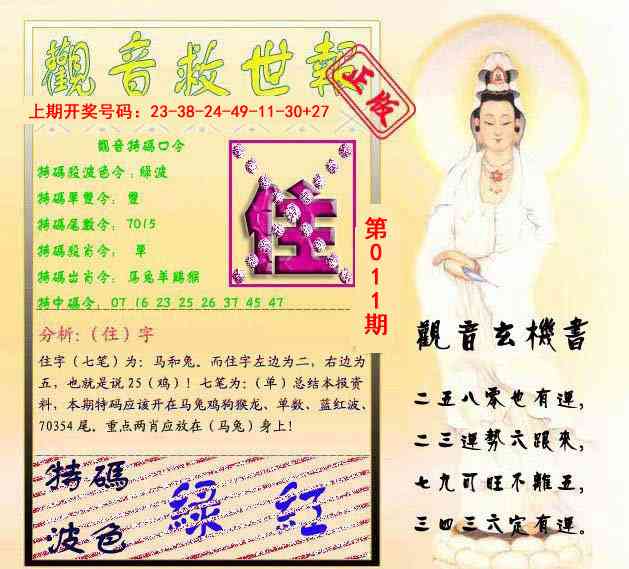 觀音救世報
正版
上期开奖号码：23-38-24-49-11-30+27
觀音特碼口令
特碼段波色令：綠波
特碼單雙令： 雙
特碼尾數令： 7015
特碼段肖令： 單
特碼出肖令： 馬兔羊鷄猴
特中碼令： 07 16 23 25 26 37 45 47
住
第011期
分析:（住）字
住字（七笔）为：马和兔。而住字左边为二，右边为
五，也就是说 25（鸡）！七笔为：（单）总结本报资
料，本期特码应该开在马兔鸡狗猴龙、单数、蓝红波、
70354 尾。重点两肖应放在（马兔）身上！
特碼
波色
綠 紅
觀音玄機書
二五八零也有運，
二三運勢六跟來，
七九可旺不離五，
三四三六定有運。